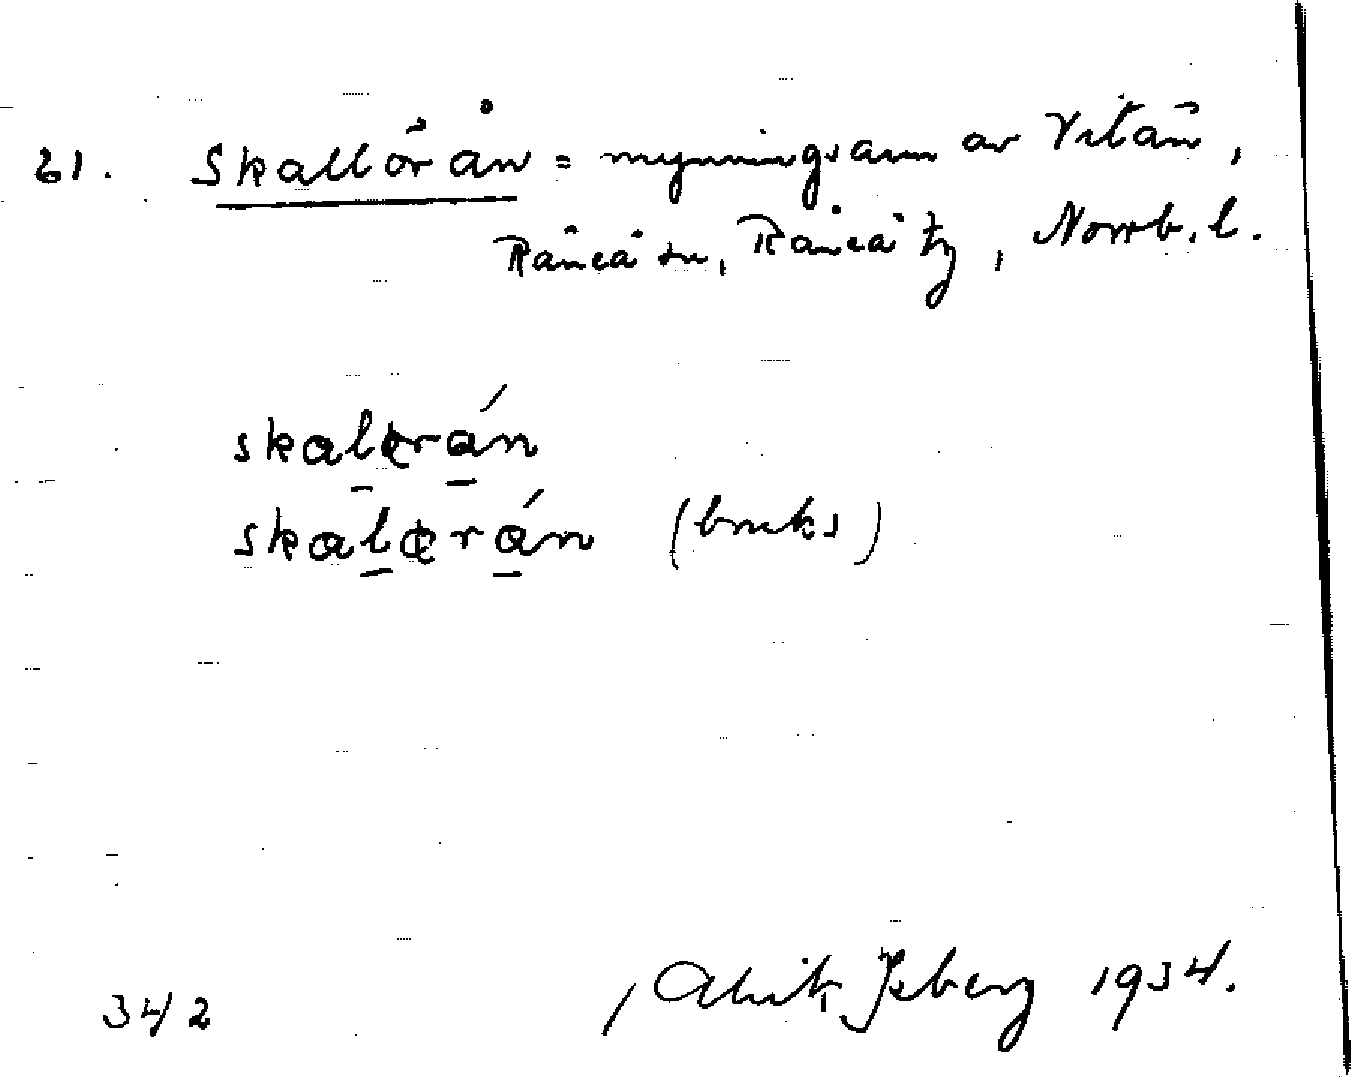 61. Skallörån = mynningsarm av Vitån,
Råneå sn, Råneå tg, Norrb. l.
skalɐrán
skalɐrán (bruks)
342 Alarik Isberg 1934.